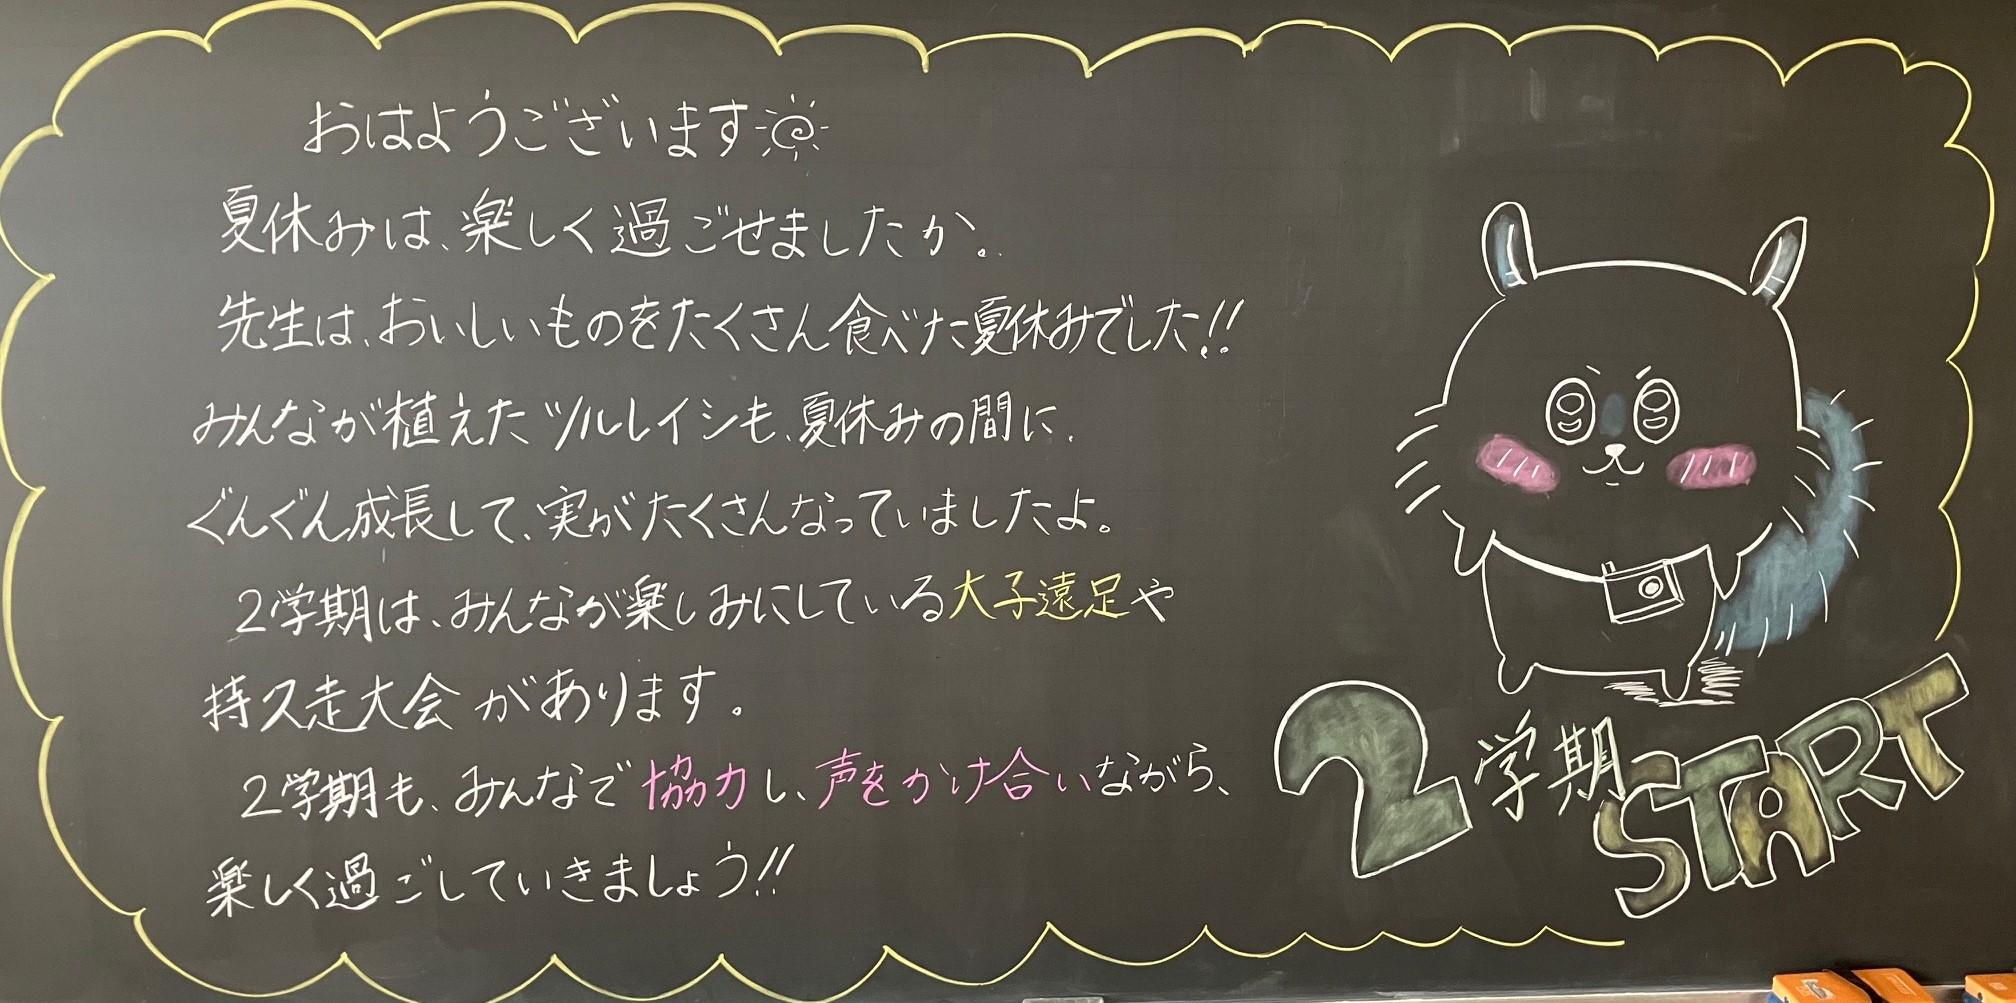 おはようございます
夏休みは、楽しく過ごせましたか。
先生は、おいしいものをたくさん食べた夏休みでした!!
みんなが植えたツルレイシも、夏休みの間に、
ぐんぐん成長して、実がたくさんなっていましたよ。
2学期は、みんなが楽しみにしている大子遠足や
持久走大会があります。
2学期も、みんなで協力し、声をかけ合いながら、
楽しく過ごしていきましょう!!
2学期START